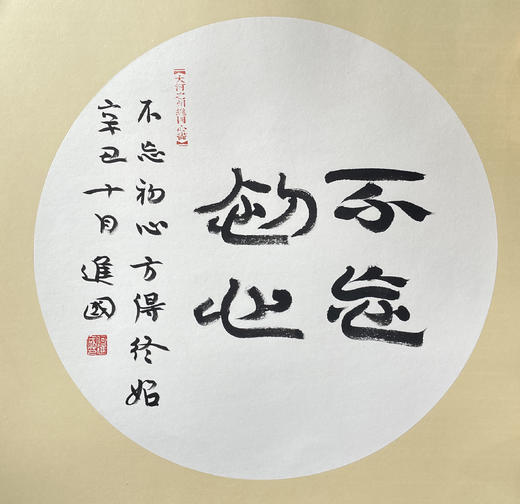 不忘
初心
不忘初心方得终始
辛丑十月進國